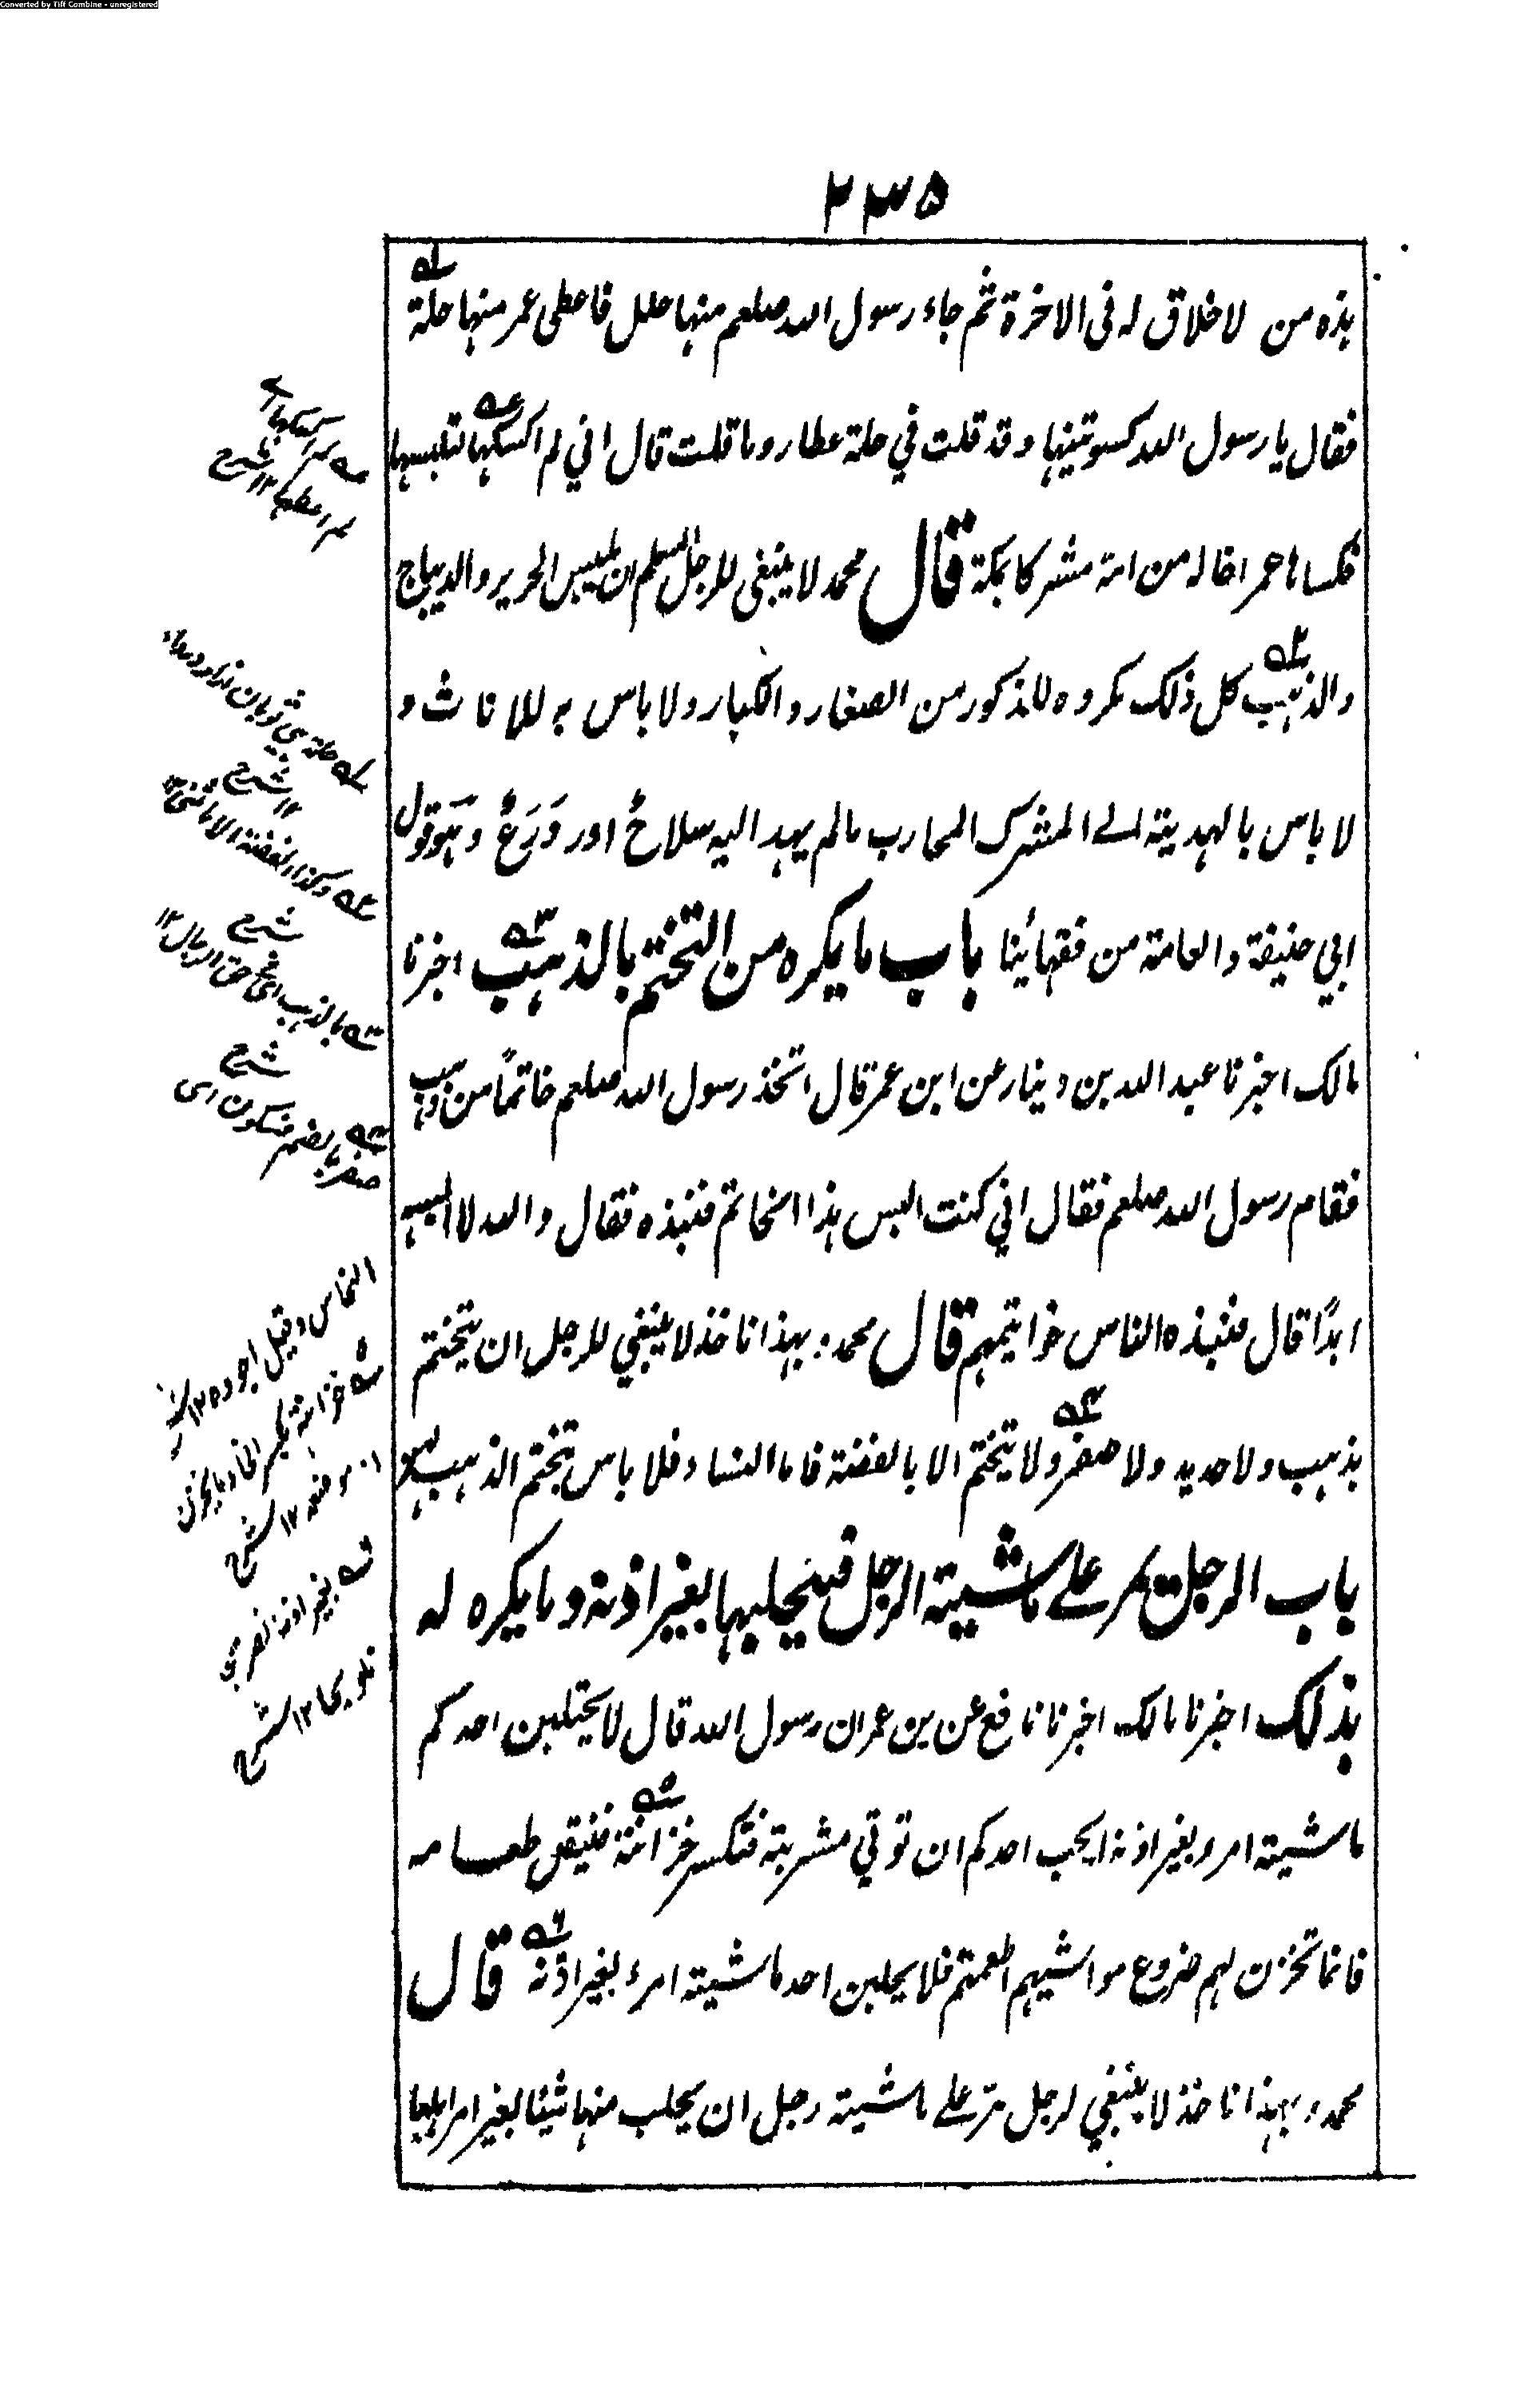 Converted by Tiff Combine - unregistered
٢٣٥
هذه من لاخلاق له فى الاخرة ثم جاء رسول الله صلعم منها حلل فاعطى عمر منها حلة
فقال يا رسول الله كسوتنيها وقد قلت في حلة عطارد ما قلت قال اني لم اكسكها لتلبسها
فكساها عمر اخا له من امه مشركا بمكة قال محمد لا ينبغى للرجل المسلم ان يلبس الحرير والديباج
والذهب كل ذلك مكروه للذكور من الصغار والكبار ولا باس به للاناث و
لا باس بالهدية الى المشرك المحارب مالم يهد اليه سلاح او درع وهو قول
ابي حنيفة والعامة من فقهائنا باب ما يكره من التختم بالذهب اخبرنا
مالك اخبرنا عبد الله بن دينار عن ابن عمر قال اتخذ رسول الله صلعم خاتماً من ذهب
فقام رسول الله صلعم فقال اني كنت البس هذا الخاتم فنبذه فقال والله لا البسه
ابدًا قال فنبذه الناس خواتيمهم قال محمد وبهذا ناخذ لا ينبغي للرجل ان يتختم
بذهب ولا حديد ولا صفر ولا يتختم الا بالفضة فاما النساء فلا باس بتختم الذهب لهن
باب الرجل يمر على ماشية الرجل فيحلبها بغير اذنه وما يكره له
بذلك اخبرنا مالك اخبرنا نافع عن بن عمر ان رسول الله قال لا يحتلبن احدكم
ماشية امرء بغير اذنه ايحب احدكم ان توتي مشربته فتكسر خزانته فينتقل طعامه
فانما تخزن لهم ضروع مواشيهم اطعمتهم فلا يحلبن احد ماشية امرء بغير اذنه قال
محمد وبهذا ناخذ لا ينبغي لرجل مر على ماشية رجل ان يحلب منها شيئا بغير امر اهلها
لم اعطكها ١٢ شرح
شرح
بالذهب اى فى حق الرجال ١٢
شرح
النحاس وقيل اجوده ١٢
بغير اذنه